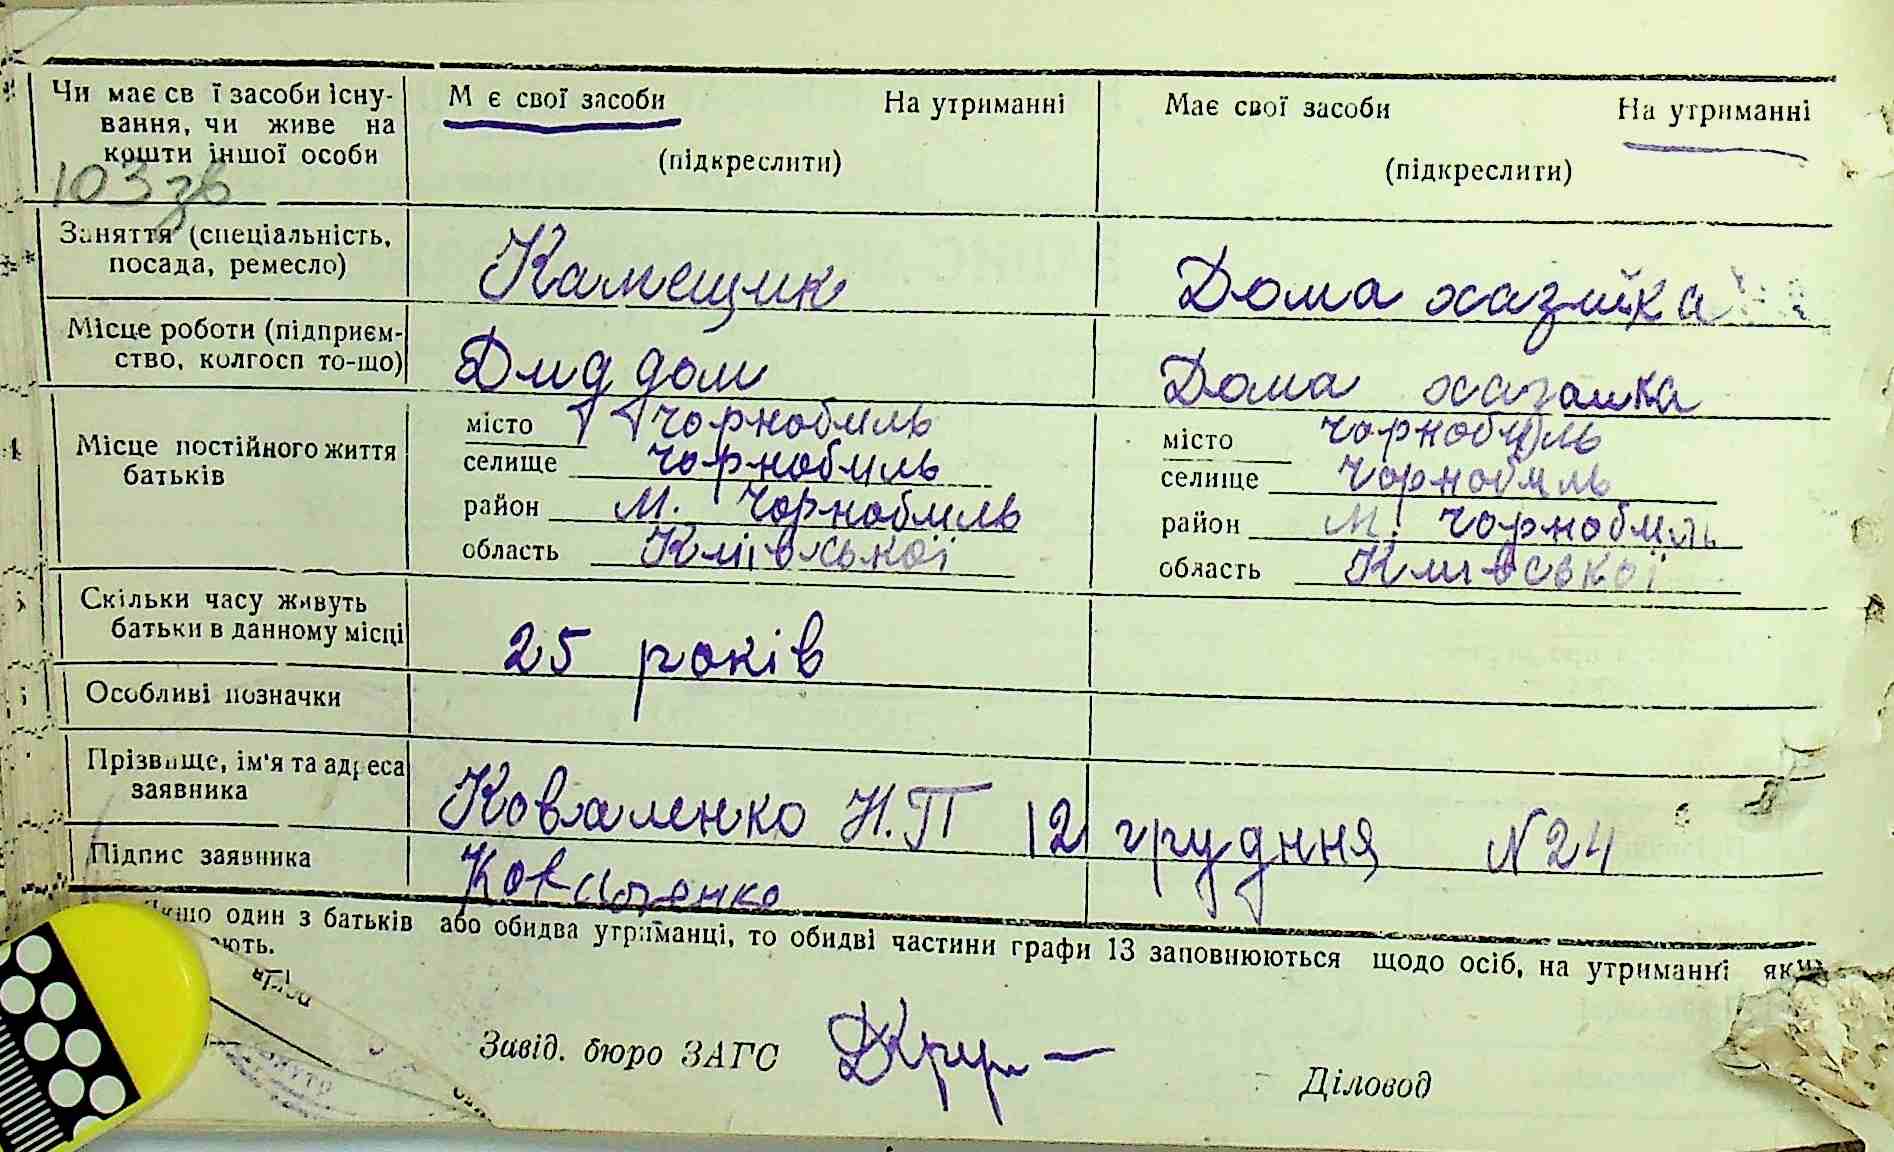 Чи має св ї засоби існу-
вання, чи живе на
кошти іншої особи
103 зв
М є свої засоби На утриманні
(підкреслити)
Має свої засоби На утриманні
(підкреслити)
Заняття (спеціальність,
посада, ремесло)
Каменщик
Дома хазяйка
Місце роботи (підприєм-
ство, колгосп то-що)
дом
Дома хазяйка
Місце постійного життя
батьків
місто Чорнобиль
селище Чорнобиль
район м. Чорнобиль
область Київської
місто Чорнобиль
селище Чорнобиль
район м. Чорнобиль
область Київської
Скільки часу живуть
батьки в данному місці
25 років
Особливі позначки
Прізвище, ім'я та адреса
заявника
Коваленко Н.П 12 грудння N24
Підпис заявника
Коваленко
Якшо один з батьків або обидва утриманці, то обидві частини графи 13 заповнюються щодо осіб, на утриманні яких
ають.
Завід. бюро ЗАГС
Діловод